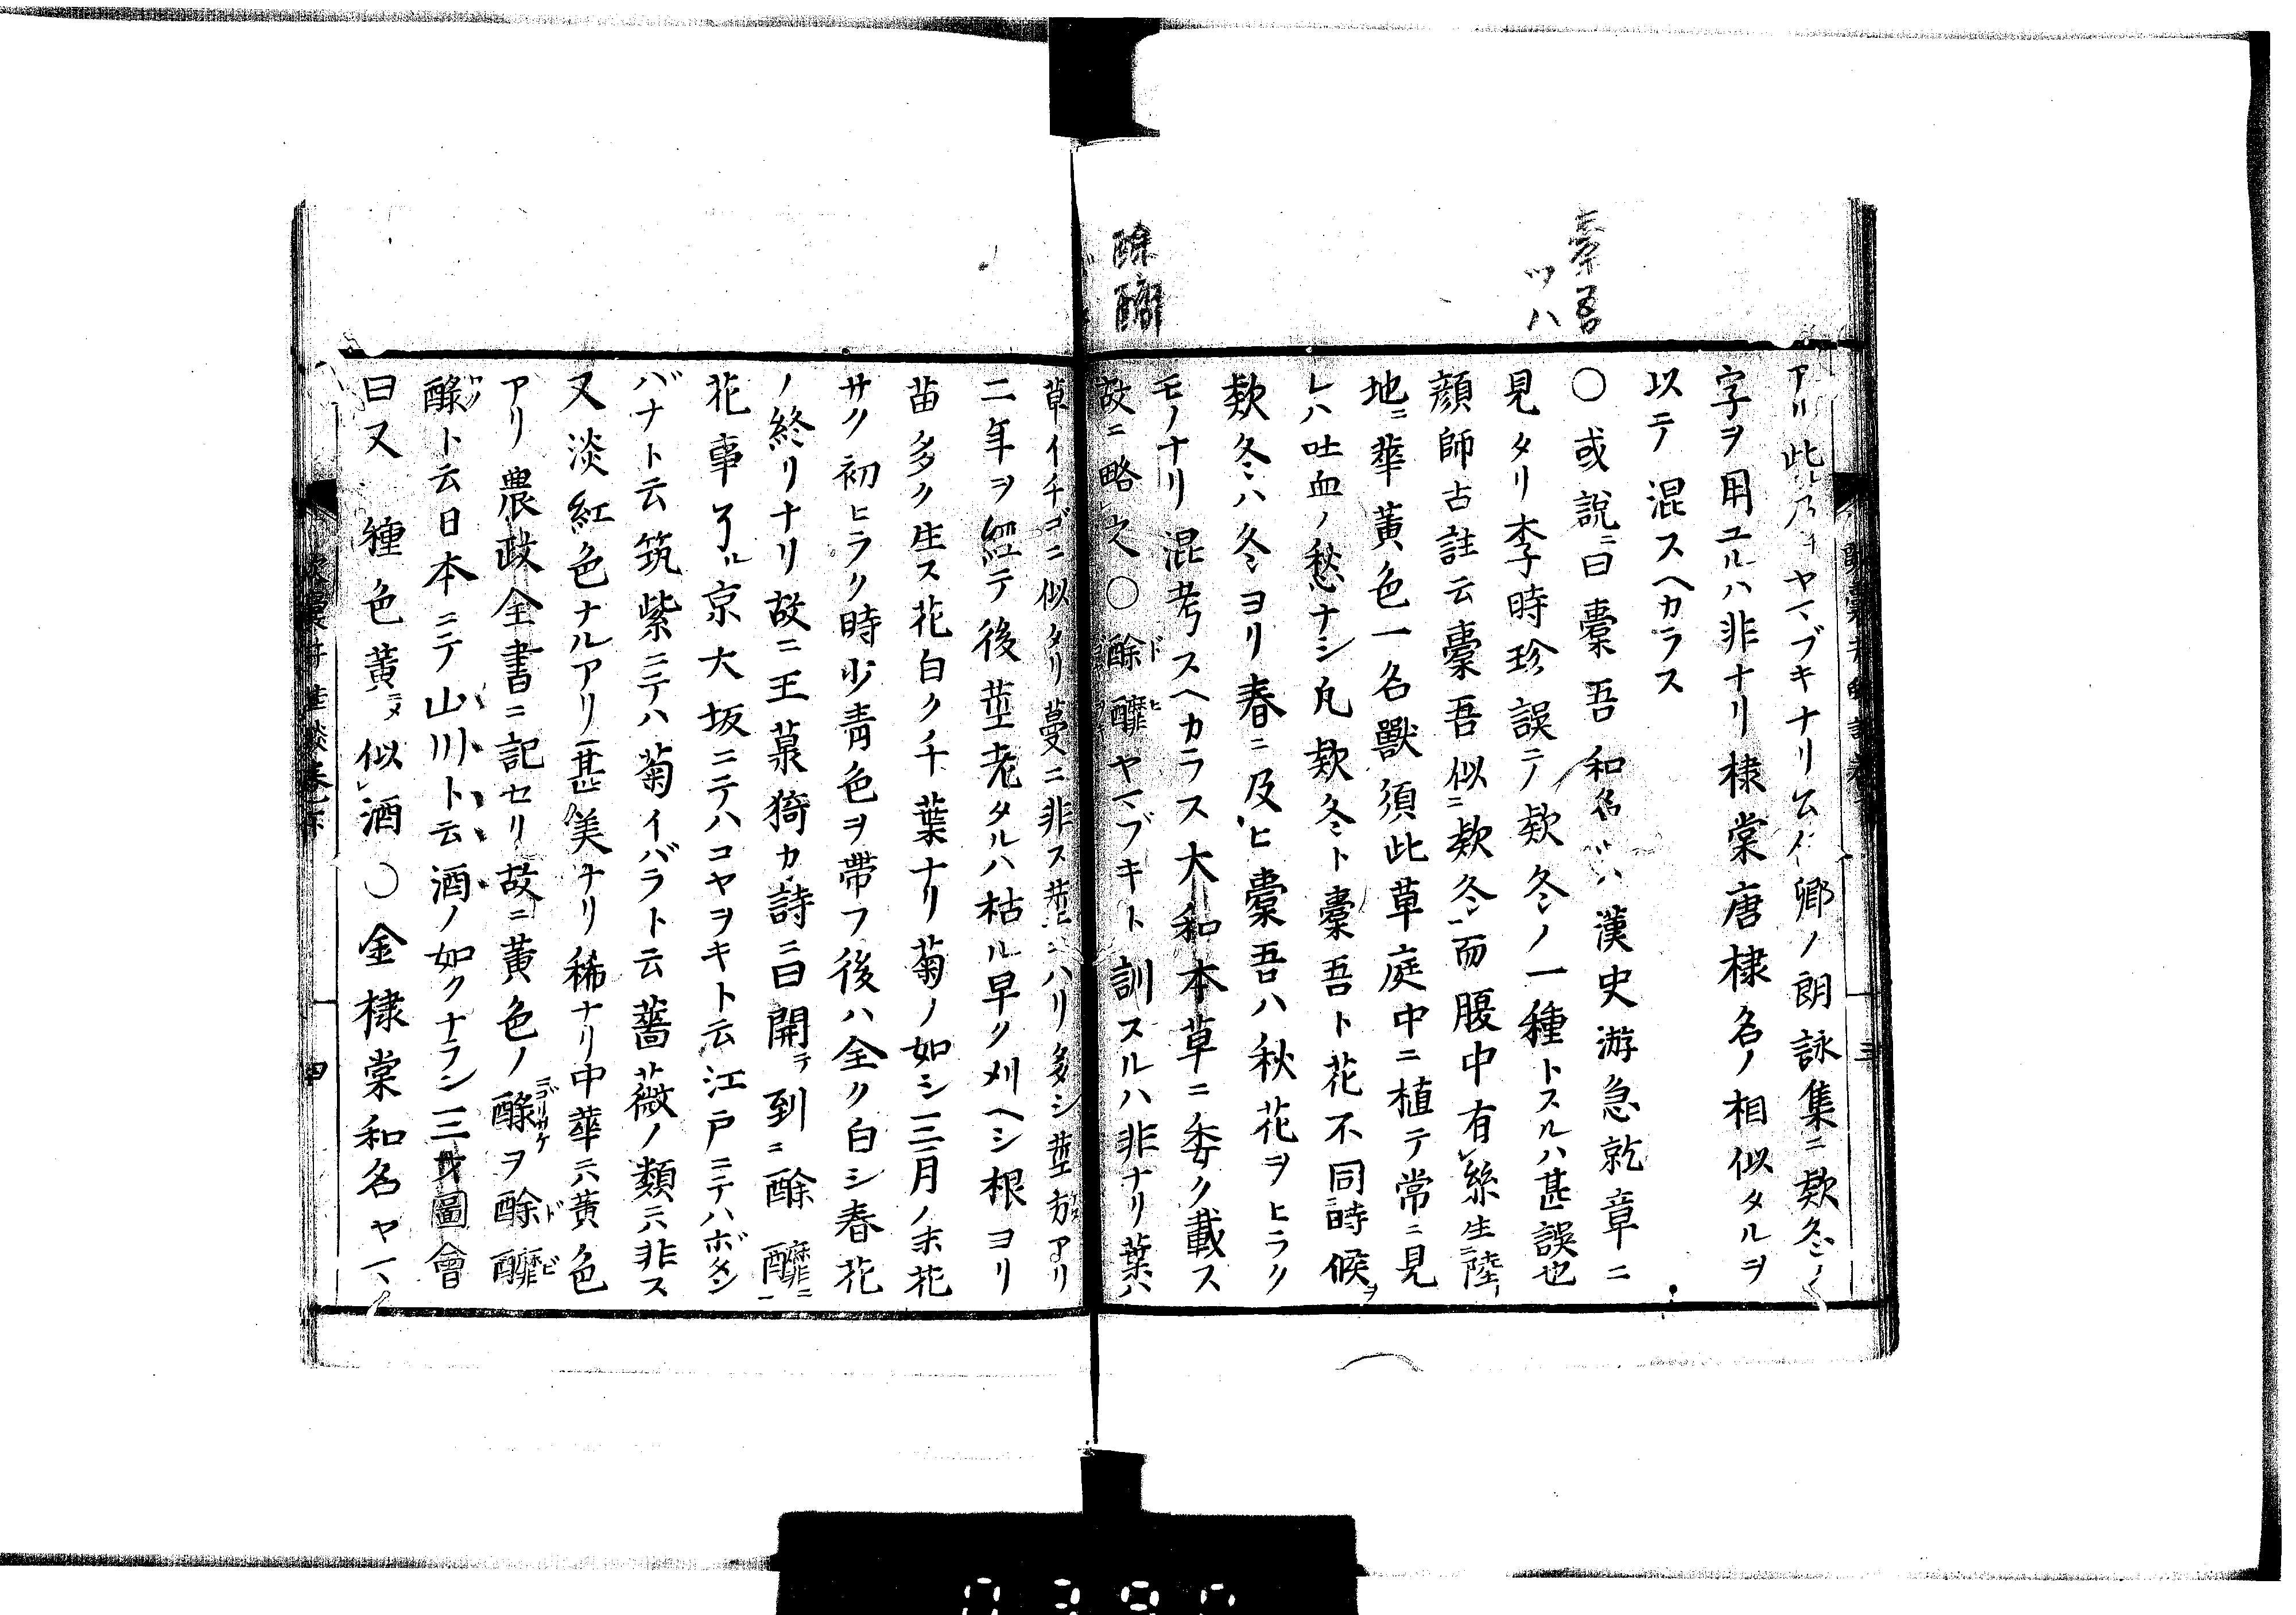 槖吾
ツハ
酴醾
アリ此レ乃チヤマブキナリ公任卿ノ朗詠集ニ欵冬ノ
字ヲ用ユルハ非ナリ棣棠唐棣名ノ相似タルヲ
以テ混スヘカラス
〇或説ニ曰槖吾和名ツハ漢史游急就章ニ
見タリ李時珍誤テ欵冬ノ一種トスルハ甚誤也
顔師古註云槖吾似ニ欵冬一而腹中有レ絲生ニ陸
地ニ華黄色一名獸須此草庭中ニ植テ常ニ見
レハ吐血ノ愁ナシ凡欵冬ト槖吾ト花不同時候ヲ
欵冬ハ冬ヨリ春ニ及ヒ槖吾ハ秋花ヲヒラク
モノナリ混考スヘカラス大和本草ニ委ク載ス
故ニ略レ之〇酴醾ヤマブキト訓スルハ非ナリ葉ハ
草イチゴニ似タリ蔓ニ非ス茎ニハリ多シ茎方アリ
二年ヲ經テ後茎老タルハ枯ル早ク刈ヘシ根ヨリ
苗多ク生ス花白ク千葉ナリ菊ノ如シ三月ノ末花
サク初ヒラク時少青色ヲ帶フ後ハ全ク白シ春花
ノ終リナリ故ニ王菉猗カ詩ニ曰開テ到ニ酴醾ニ一
花事了ル京大坂ニテハコヤヲキト云江戸ニテハボタン
バナト云筑紫ニテハ菊イバラト云薔薇ノ類ニ非ス
又淡紅色ナルアリ甚美ナリ稀ナリ中華ニハ黄色
アリ農政全書ニ記セリ故ニ黄色ノ醁ヲ酴醾
醁ト云日本ニテ山川ト云酒ノ如クナラン三才圖會
曰又一種色黄ニメ似レ酒〇金棣棠和名ヤマ
四